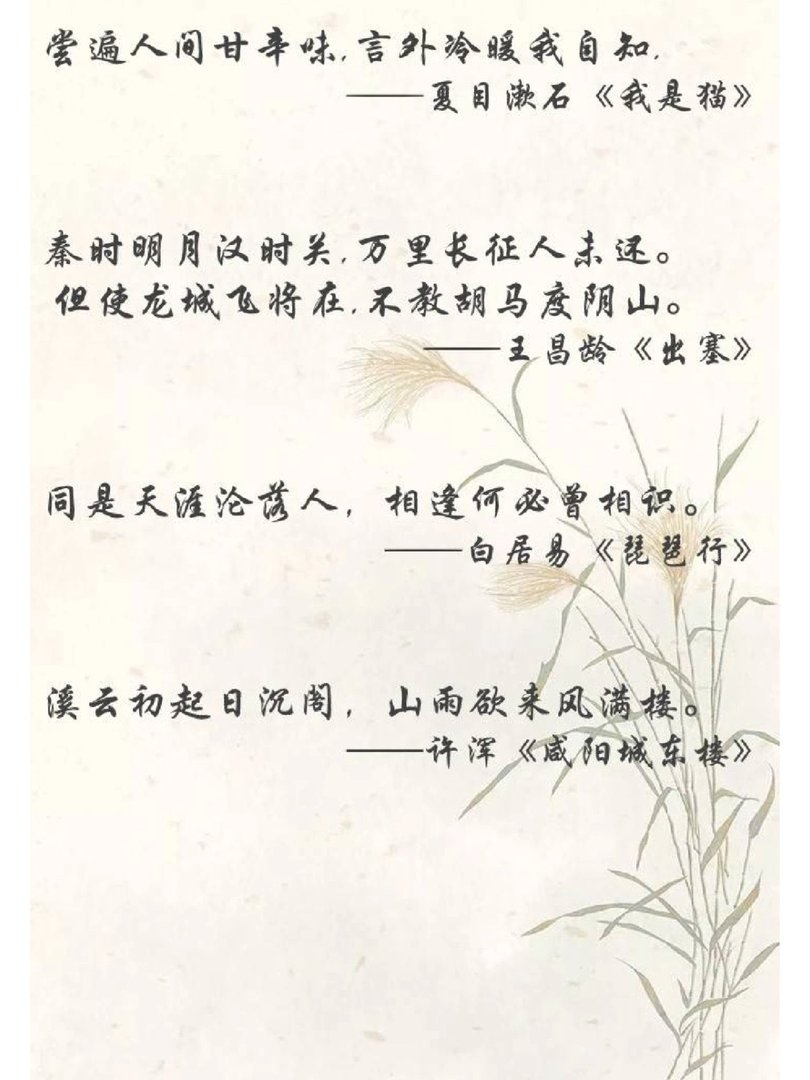 尝遍人间甘辛味,言外冷暖我自知.
——夏目漱石《我是猫》
秦时明月汉时关,万里长征人未还。
但使龙城飞将在,不教胡马度阴山。
——王昌龄《出塞》
同是天涯沦落人，相逢何必曾相识。
——白居易《琵琶行》
溪云初起日沉阁，山雨欲来风满楼。
——许浑《咸阳城东楼》